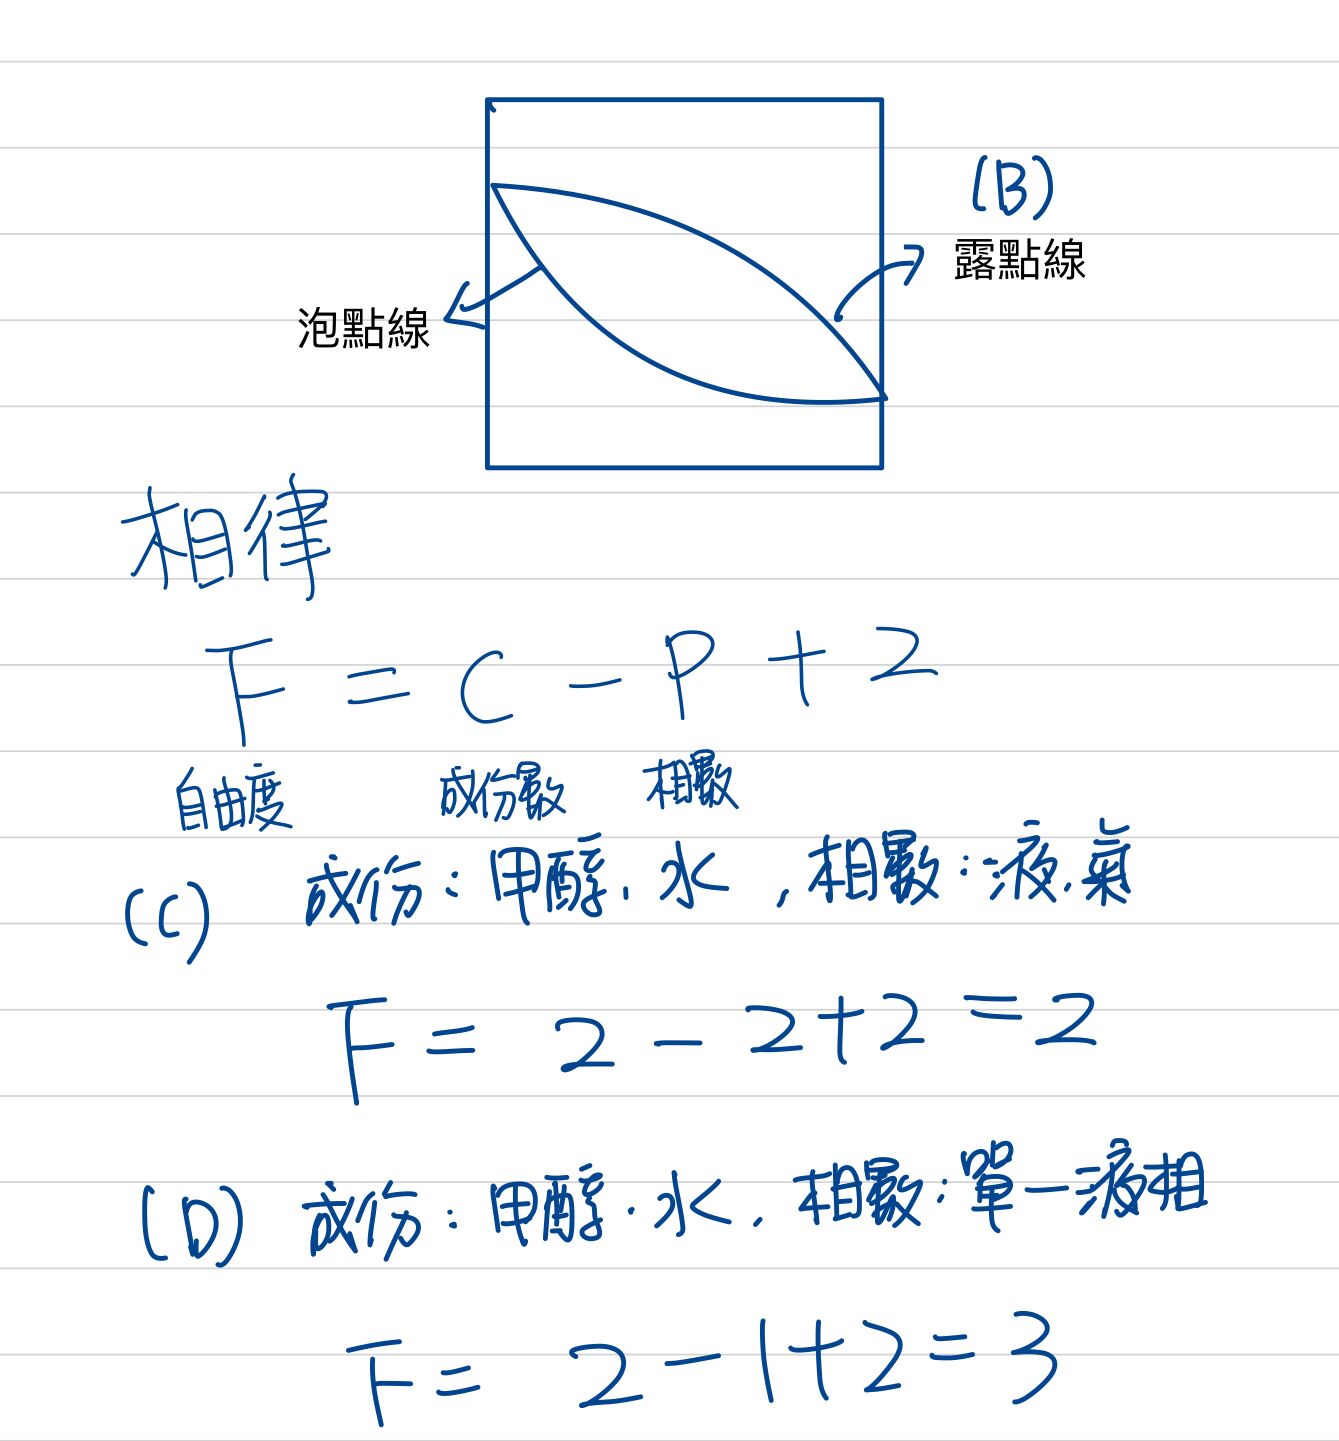 (B)
露點線
泡點線
相律
F = C - P + 2
自由度 成份數 相數
(C) 成份：甲醇、水，相數：液、氣
F = 2 - 2 + 2 = 2
(D) 成份：甲醇、水，相數：單一液相
F = 2 - 1 + 2 = 3